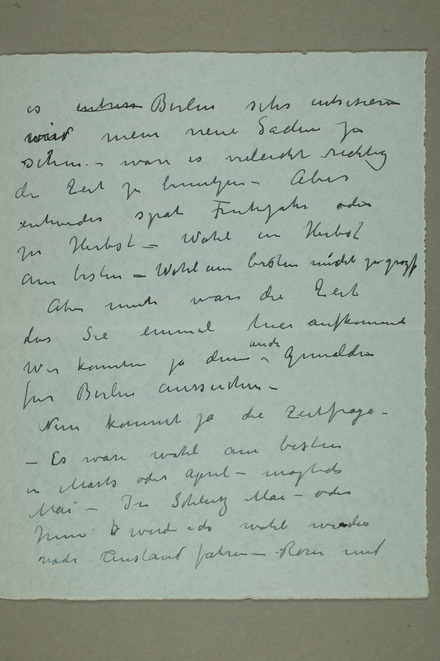 es Berlin sehr interessieren
wird mein neue Sachen zu
sehen. – ware es vieleicht richtig
die Zeit zu benutzen – Aber
entweder spat Fruhjahr oder
zu Herbst – Wohl im Herbst
am besten – Wohl am besten nicht zu gross
Aber mich wars die Zeit
das Sie einmal hier aufkommen
Wir konnten ja dann auch Gemälde
fur Berlin aussuchen –
Nun kommt ja die Zeitfrage –
– Es ware wohl am besten
in Marts oder April –
Mai – In Mai – oder
Juni werde ich wohl wieder
nach Ausland fahren – Reisen und